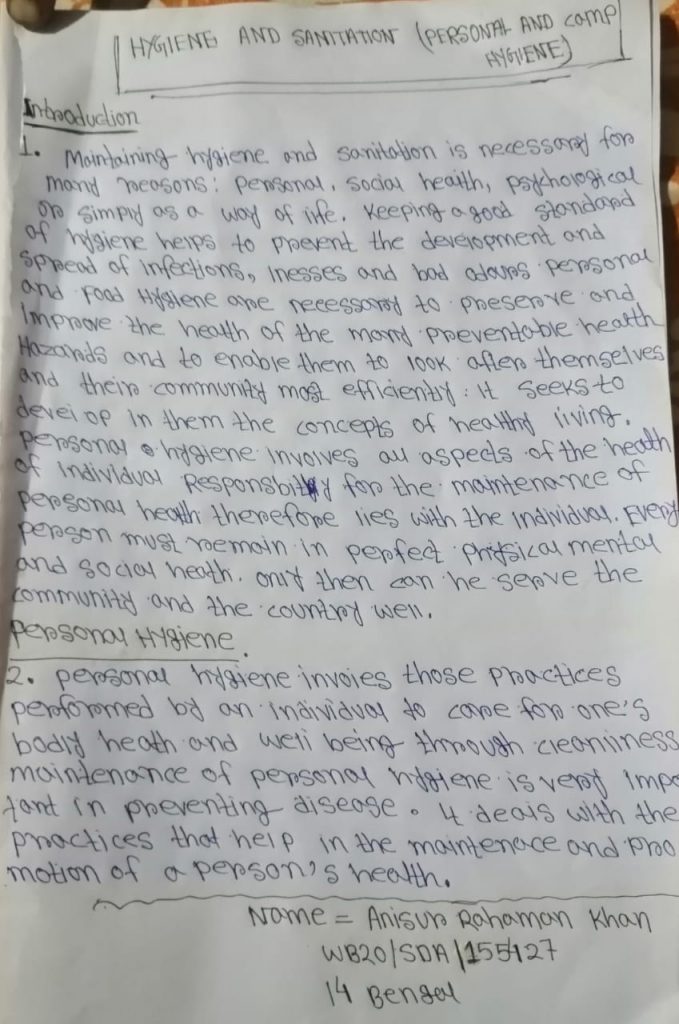 HYGIENE AND SANITATION (PERSONAL AND camp
HYGIENE)
Introduction
1. Maintaining hygiene and sanitation is necessary for
many reasons: personal, social health, psychological
or simply as a way of life. Keeping a good standard
of hygiene helps to prevent the development and
spread of infections, inesses and bad odours personal
and Food Hygiene are necessary to preserve and
improve the health of the many preventable health
Hazards and to enable them to look after themselves
and their community most efficiently: it seeks to
develop in them the concepts of healthy living.
personal hygiene involves all aspects of the heath
of individual Responsbility for the maintenance of
personal health therefore lies with the individual. Every
person must remain in perfect physical mental
and social heath. only then can he serve the
community and the country well.
Personal Hygiene.
2. personal hygiene invoies those practices
performed by an individual to care for one's
bodily heath and well being through cleanliness
maintenance of personal hygiene is very impo
tant in preventing disease. It deals with the
practices that help in the maintenace and pro
motion of a person's health.
Name = Anisur Rahaman Khan
WB20/SDA/155427
14 Bengal